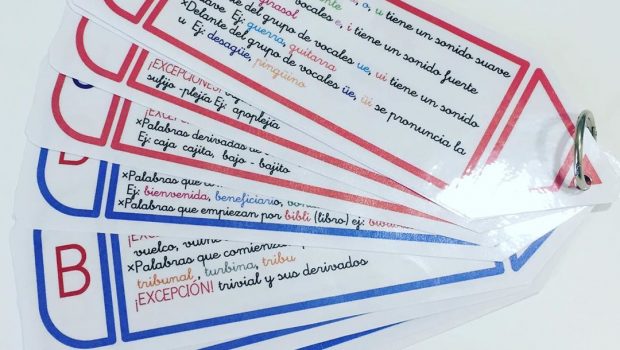 o, u tiene un sonido suave
girasol
vocales e, i tiene un sonido fuerte
×Delante del grupo de vocales ue, ui tiene un sonido
suave Ej: guerra, guitarra
×Delante del grupo de vocales üe, üi se pronuncia la
u Ej: desagüe, pingüino
¡EXCEPCIONES!
sufijo -plejía Ej: apoplejía
¡EXC
×Palabras derivadas de
Ej: caja cajita, bajo - bajito
B
×Palabras que
Ej: bienvenida, beneficiario,
×Palabras que empiezan por bibli (libro) ej:
B
¡EXC
vuelco,
×Palabras que comienza
tribunal, turbina, tribu
¡EXCEPCIÓN! trivial y sus derivados